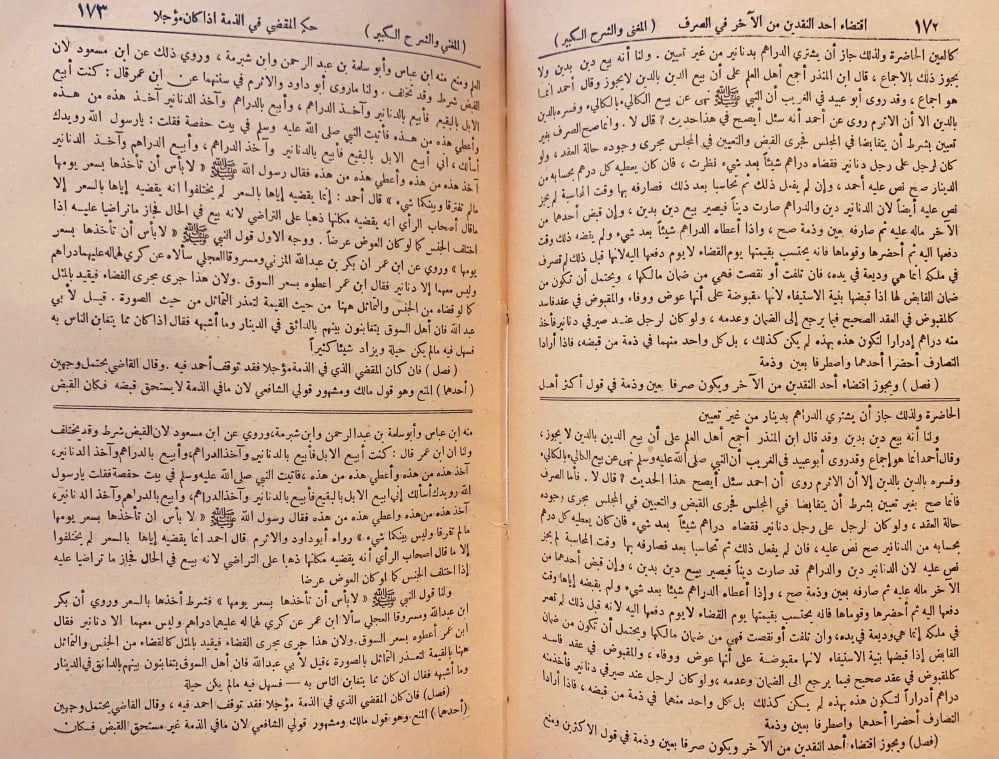 ١٧٢ اقتضاء احد النقدين من الآخر في الصرف ( المغني والشرح الكبير )
كالعين الحاضرة ولذلك جاز أن يشتري الدراهم بدنانير من غير تعيين . ولنا أنه بيع دين بدين ولا
يجوز ذلك بالاجماع ، قال ابن المنذر أجمع أهل العلم على أن بيع الدين بالدين لايجوز وقال أحمد انما
هو اجماع ، وقد روى أبو عبيد في الغريب أن النبي ﷺ نهى عن بيع الكالىء بالكالىء وفسره بالدين
بالدين الا أن الاثرم روى عن أحمد أنه سئل أيصح في هذا حديث ؟ قال لا . وانما صح الصرف بغير
تعيين بشرط أن يتقابضا في المجلس فجرى القبض والتعيين في المجلس مجرى وجوده حالة العقد ، ولو
كان لرجل على رجل دنانير فقضاه دراهم شيئاً بعد شيء نظرت ، فان كان يعطيه كل درهم بحسابه من
الدينار صح نص عليه أحمد ، وإن لم يفعل ذلك ثم تحاسبا بعد ذلك فصارفه بها وقت المحاسبة لم يجز
نص عليه أيضاً لان الدنانير دين والدراهم صارت ديناً فيصير بيع دين بدين ، وإن قبض أحدهما من
الآخر ماله عليه ثم صارفه بعين وذمة صح ، وإذا أعطاه الدراهم شيئاً بعد شيء ولم يقضه ذلك وقت
دفعها اليه ثم أحضرها وقوماها فانه يحتسب بقيمتها يوم القضاء لا يوم دفعها اليه لانها قبل ذلك لم تصرف
في ملكه انما هي وديعة في يده، فان تلفت أو نقصت فهي من ضمان مالكها ، ويحتمل أن تكون من
ضمان القابض لها اذا قبضها بنية الاستيفاء لانها مقبوضة على أنها عوض ووفاء والمقبوض في عقد فاسد
كالمقبوض في العقد الصحيح فيما يرجع إلى الضمان وعدمه ، ولو كان لرجل عند صيرفي دنانير فأخذ
منه دراهم إدرارا لتكون هذه بهذه لم يكن كذلك ، بل كل واحد منهما في ذمة من قبضه، فاذا أرادا
التصارف أحضرا أحدهما واصطرفا بعين وذمة
( فصل ) ويجوز اقتضاء أحد النقدين من الآخر ويكون صرفا بعين وذمة في قول أكثر أهل
الحاضرة ولذلك جاز أن يشتري الدراهم بدينار من غير تعيين
ولنا أنه بيع دين بدين وقد قال ابن المنذر أجمع أهل العلم على أن بيع الدين بالدين لا يجوز ،
وقال أحمد انما هو إجماع وقد روى أبو عبيد في الغريب أن النبي صلى الله عليه وسلم نهى عن بيع الكالىء بالكالىء
وفسره بالدين بالدين إلا أن الاثرم روى أن احمد سئل أيصح هذا الحديث ؟ قال لا . فأما الصرف
فانما صح بغير تعيين بشرط أن يتقابضا في المجلس فجرى القبض والتعيين في المجلس مجرى وجوده
حالة العقد ، ولو كان لرجل على رجل دنانير فقضاه دراهم شيئاً بعد شيء فان كان يعطيه كل درهم
بحسابه من الدنانير صح نص عليه ، فان لم يفعل ذلك ثم تحاسبا بعد فصارفه بها وقت المحاسبة لم يجز
نص عليه لان الدنانير دين والدراهم قد صارت ديناً فيصير بيع دين بدين ، وإن قبض أحدهما من
الآخر ماله عليه ثم صارفه بعين وذمة صح ، وإذا أعطاه الدراهم شيئاً بعد شيء ولم يقضه إياها وقت
دفعها اليه ثم أحضرها وقوماها فانه يحتسب بقيمتها يوم القضاء لايوم دفعها اليه لانه قبل ذلك لم تصر
في ملكه إنما هي وديعة في يده، وان تلفت أو نقصت فهي من ضمان مالكها ويحتمل أن تكون من ضمان
القابض إذا قبضها بنية الاستيفاء لانها مقبوضة على أنها عوض ووفاء ، والمقبوض في عقد فاسد
كالمقبوض في عقد صحيح فيما يرجع الى الضمان وعدمه ، ولو كان لرجل عند صيرفي دنانير فأخذ منه
دراهم أدراراً لتكون هذه بهذه لم يكن كذلك بل كل واحد منهما في ذمة من قبضه ، فاذا أرادا
التصارف أحضرا أحدهما واصطرفا بعين وذمة
(فصل) ويجوز اقتضاء أحد النقدين من الآخر ويكون صرفا بعين وذمة في قول الاكثرين ومنع
( المغني والشرح الكبير ) حكم المقضي في الذمة اذا كان مؤجلا ١٧٣
العلم ومنع منه ابن عباس وأبو سلمة بن عبد الرحمن وابن شبرمة ، وروي ذلك عن ابن مسعود لان
القبض شرط وقد تخلف . ولنا ماروى أبو داود والاثرم في سننهما عن ابن عمر قال : كنت أبيع
الابل بالبقيع فأبيع بالدنانير وآخذ الدراهم ، وأبيع بالدراهم وآخذ الدنانير آخذ هذه من هذه
وأعطي هذه من هذه فأتيت النبي صلى الله عليه وسلم في بيت حفصة فقلت : يارسول الله رويدك
أسألك، اني أبيع الابل بالبقيع فأبيع بالدنانير وآخذ الدراهم ، وأبيع الدراهم وآخذ الدنانير
آخذ هذه من هذه وأعطي هذه من هذه فقال رسول الله ﷺ « لا بأس أن تأخذها بسعر يومها
مالم تفترقا وبينكما شيء » قال أحمد : إنما يقضيه إياها بالسعر لم يختلفوا انه يقضيه إياها بالسعر إلا
ماقال أصحاب الرأي انه يقضيه مكانها ذهبا على التراضي لانه بيع في الحال فجاز ماتراضيا عليه اذا
اختلف الجنس كما لو كان العوض عرضاً . ووجه الاول قول النبي ﷺ « لابأس أن تأخذها بسعر
يومها » وروي عن ابن عمر ان بكر بن عبدالله المزني ومسروقا العجلي سألاه عن كري لهما له عليهما دراهم
وليس معهما إلا دنانير فقال ابن عمر اعطوه بسعر السوق .ولان هذا جرى مجرى القضاء فيقيد بالمثل
كما لو قضاه من الجنس والتماثل ههنا من حيث القيمة لتعذر التماثل من حيث الصورة . قيل لأبي
عبد الله فان أهل السوق يتغابنون بينهم بالدانق في الدينار وما أشبهه فقال اذا كان مما يتغابن الناس به
فسهل فيه مالم يكن حيلة ويزاد شيئا كثيراً
( فصل ) فان كان المقضي الذي في الذمة مؤجلا فقد توقف أحمد فيه . وقال القاضي يحتمل وجهين
(أحدهما) المنع وهو قول مالك ومشهور قولي الشافعي لان مافي الذمة لا يستحق قبضه فكان القبض
منه ابن عباس وأبو سلمة بن عبد الرحمن وابن شبرمة، وروي عن ابن مسعود لان القبض شرط وقد يختلف
ولنا ان ابن عمر قال : كنت أبيع الابل فأبيع بالدنانير وآخذ الدراهم، وأبيع بالدراهم وآخذ الدنانير،
آخذ هذه من هذه وأعطي هذه من هذه ،فأتيت النبي صلى الله عليه وسلم في بيت حفصة فقلت يارسول
الله رويدك أسألك إني ابيع الابل بالبقيع فأبيع بالدنانير وآخذ الدراهم، وابيع بالدراهم وآخذ الدنانير،
آخذ هذه من هذه واعطي هذه من هذه فقال رسول الله ﷺ « لا بأس ان تأخذها بسعر يومها
مالم تفترقا وليس بينكما شيء » رواه أبو داود والاثرم قال احمد انما يقضيه إياها بالسعر لم يختلفوا
إلا ما قال اصحاب الرأي أنه يقضيه مكانها ذهبا على التراضي لانه بيع في الحال فجاز ما تراضيا عليه
إذا اختلف الجنس كما لو كان العوض عرضا
ولنا قول النبي ﷺ « لابأس أن تأخذها بسعر يومها » فشرط أخذها بالسعر وروي أن بكر
ابن عبدالله ومسروقا العجلي سألا ابن عمر عن كري لهما له عليهما دراهم وليس معهما الا دنانير فقال
ابن عمر أعطوه بسعر السوق .ولان هذا جرى مجرى القضاء فيقيد بالمثل كالقضاء من الجنس والتماثل
ههنا بالقيمة لتعذر التماثل بالصورة ،قيل لأبي عبدالله فان أهل السوق يتغابنون بينهم بالدانق في الدينار
وما أشبهه فقال ان كان مما يتغابن الناس به — فسهل فيه مالم يكن حيلة
(فصل) فان كان المقضي الذي في الذمة مؤجلا فقد توقف احمد فيه ، وقال القاضي يحتمل وجهين
(أحدهما) المنع وهو قول مالك ومشهور قولي الشافعي لان مافي الذمة غير مستحق القبض فكان